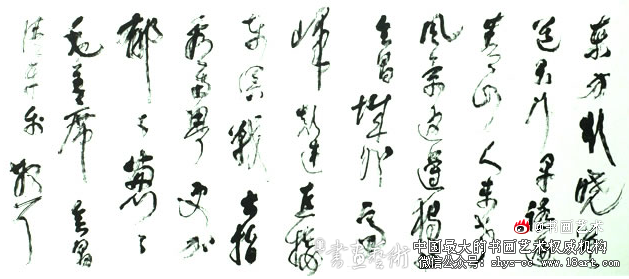 东方欲晓莫
道君行早踏遍
青山人未老
風景这邊獨好
会昌城外高
峰颠连直接
东溟战士指
看南粤更加
郁々葱々
毛主席 会昌
清平乐
@书画艺术
書畫藝術
中国最大的书画艺术权威机构
微信公众号: shys-cc www.18art.com